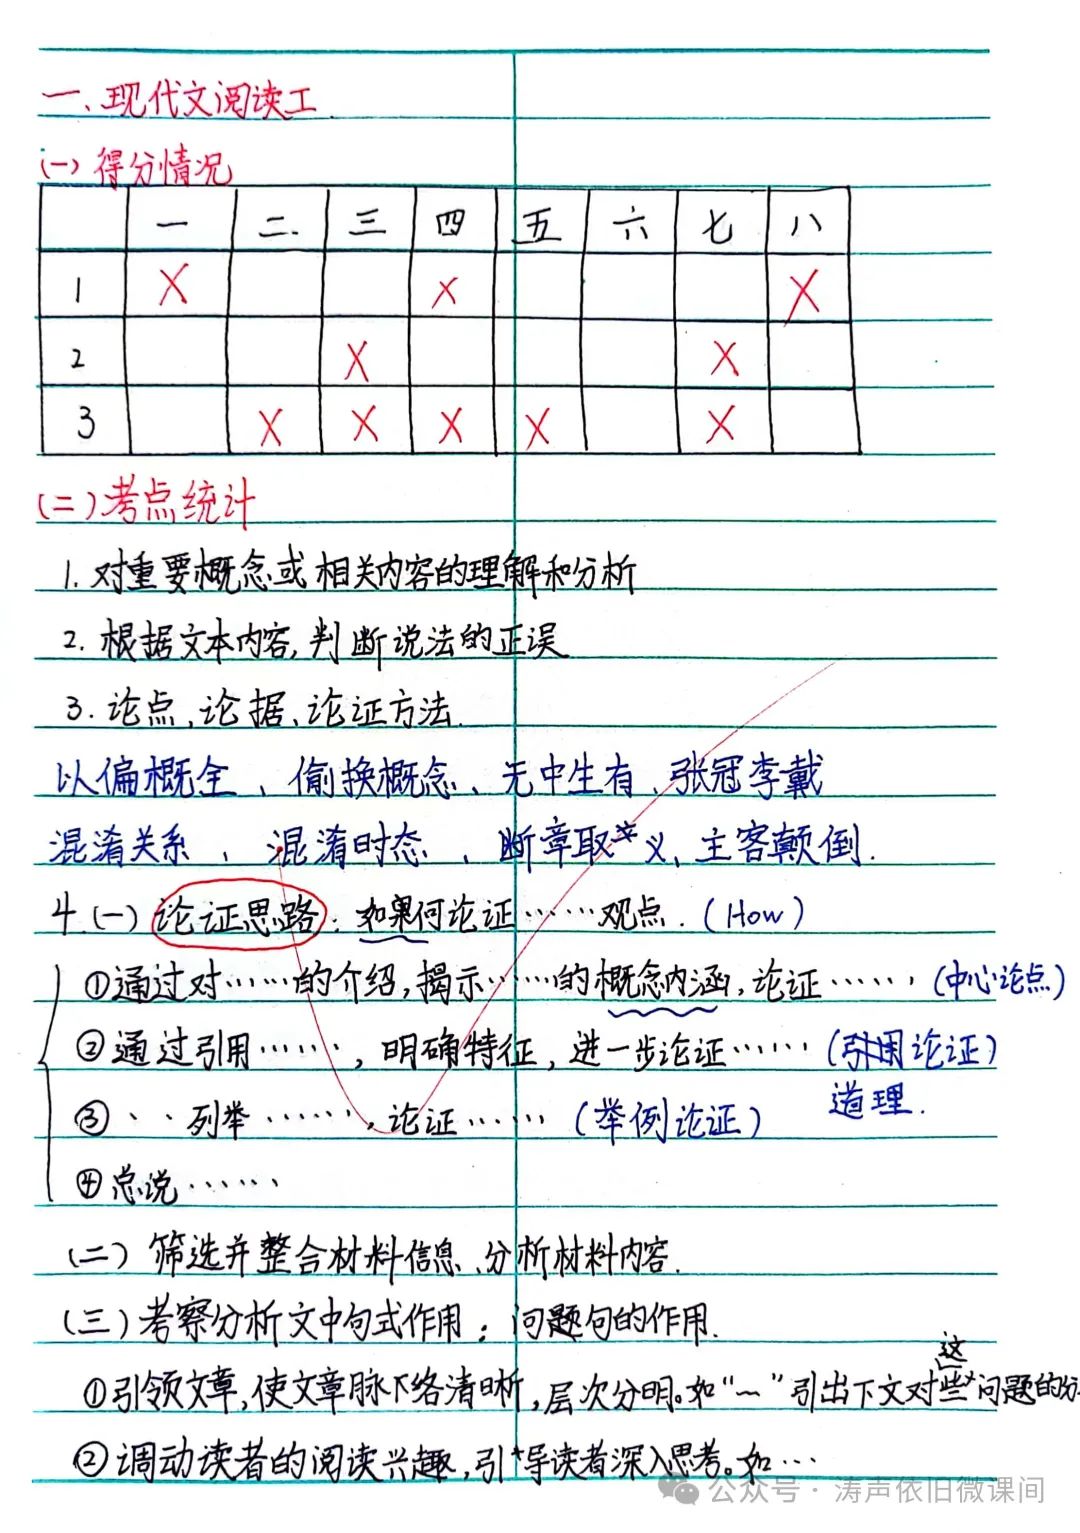 一、现代文阅读工
(一)得分情况
一 二. 三 四 五 六 七 八
1 X X X
2 X X
3 X X X X X
(二)考点统计
1.对重要概念或相关内容的理解和分析
2.根据文本内容,判断说法的正误
3.论点、论据、论证方法.
以偏概全、偷换概念、无中生有、张冠李戴
混淆关系、混淆时态、断章取义、主客颠倒.
4.(一)论证思路:如果何论证……观点.(How)
①通过对……的介绍,揭示……的概念内涵,论证……(中心论点)
②通过引用……,明确特征,进一步论证……(引用论证)
道理.
③··列举……,论证……(举例论证)
④总说……
(二)筛选并整合材料信息、分析材料内容.
(三)考察分析文中句式作用:问题句的作用.
这
①引领文章,使文章脉络清晰,层次分明。如“~”引出下文对些问题的
②调动读者的阅读兴趣,引导读者深入思考。如…
公众号·涛声依旧微课间